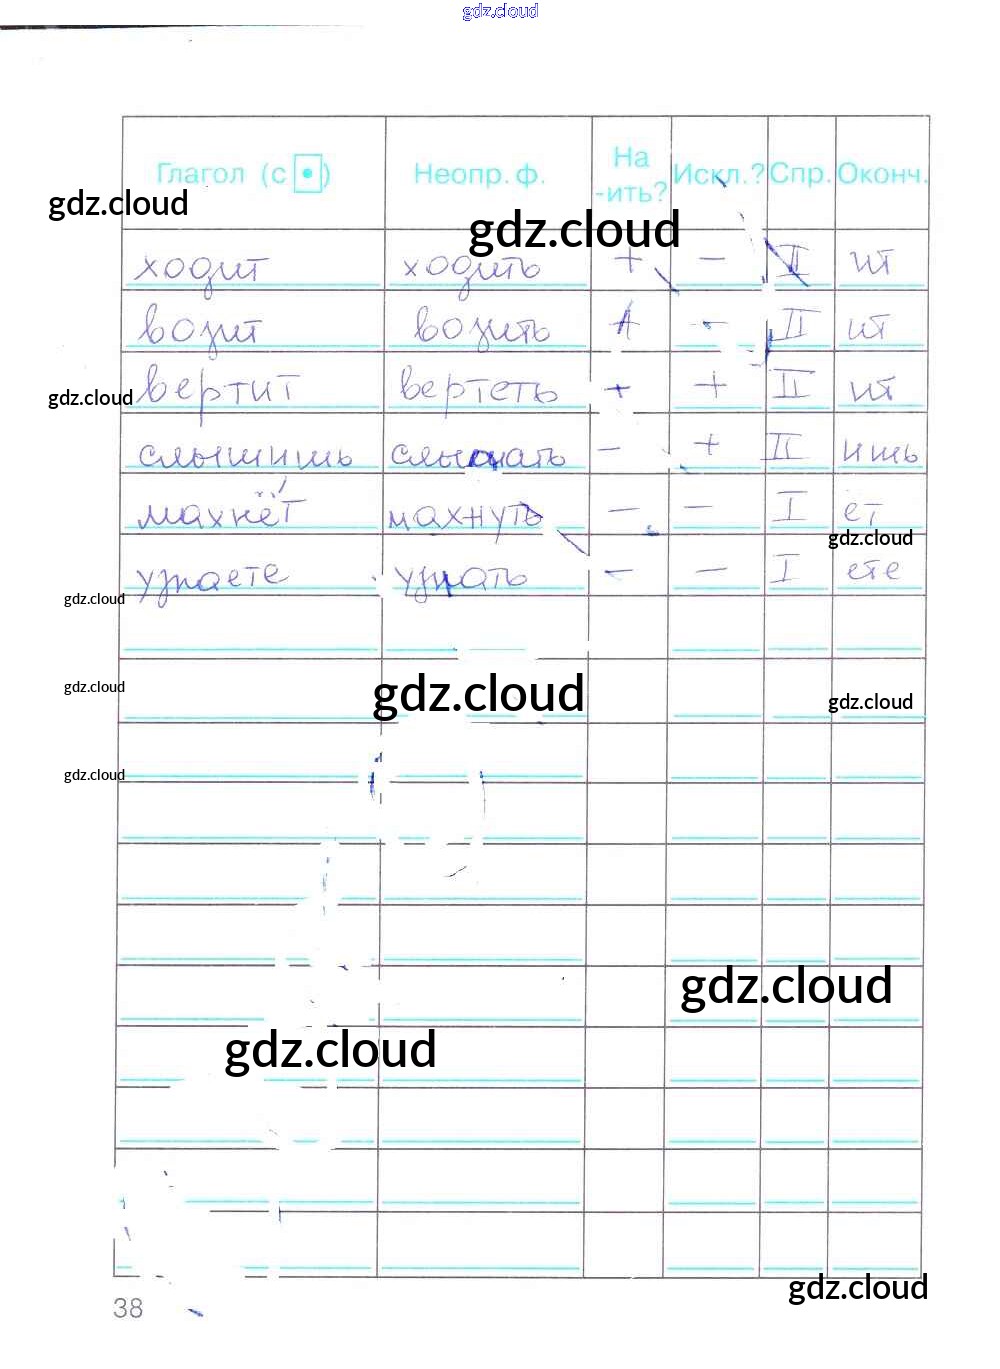 gdz.cloud
Глагол (с •) Неопр. ф. На -ить? Искл.? Спр. Оконч.
gdz.cloud
gdz.cloud
ходит ходить + - II ит
возит возить + - II ит
вертит вертеть + + II ит
gdz.cloud
слышишь слышать - + II ишь
махнёт махнуть - - I ёт
gdz.cloud
узнаете узнать - - I ете
gdz.cloud
gdz.cloud
gdz.cloud
gdz.cloud
gdz.cloud
gdz.cloud
gdz.cloud
gdz.cloud
38